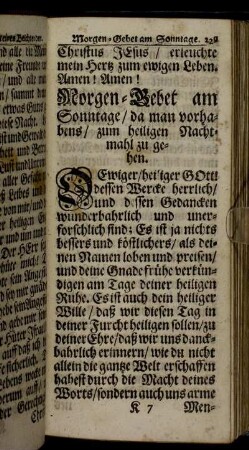 Morgen-Gebet am Sonntage.
Christus JEsus / erleuchte
mein Hertz zum ewigen Leben.
Amen! Amen!
Morgen-Gebet am
Sonntage / da man vorha-
bens / zum heiligen Nacht-
mahl zu ge-
hen.
Ewiger / heiliger GOtt!
dessen Wercke herrlich /
und dessen Gedancken
wunderbahrlich und uner-
forschlich sind: Es ist ja nichts
bessers und köstlichers / als dei-
nen Namen loben und preisen /
und deine Gnade frühe verkün-
digen am Tage deiner heiligen
Ruhe. Es ist auch dein heiliger
Wille / daß wir diesen Tag in
deiner Furcht heiligen sollen / zu
deiner Ehre / daß wir uns danck-
bahrlich erinnern / wie du nicht
allein die gantze Welt erschaffen
habest durch die Macht deines
Worts / sondern auch uns arme
K 7 Men-